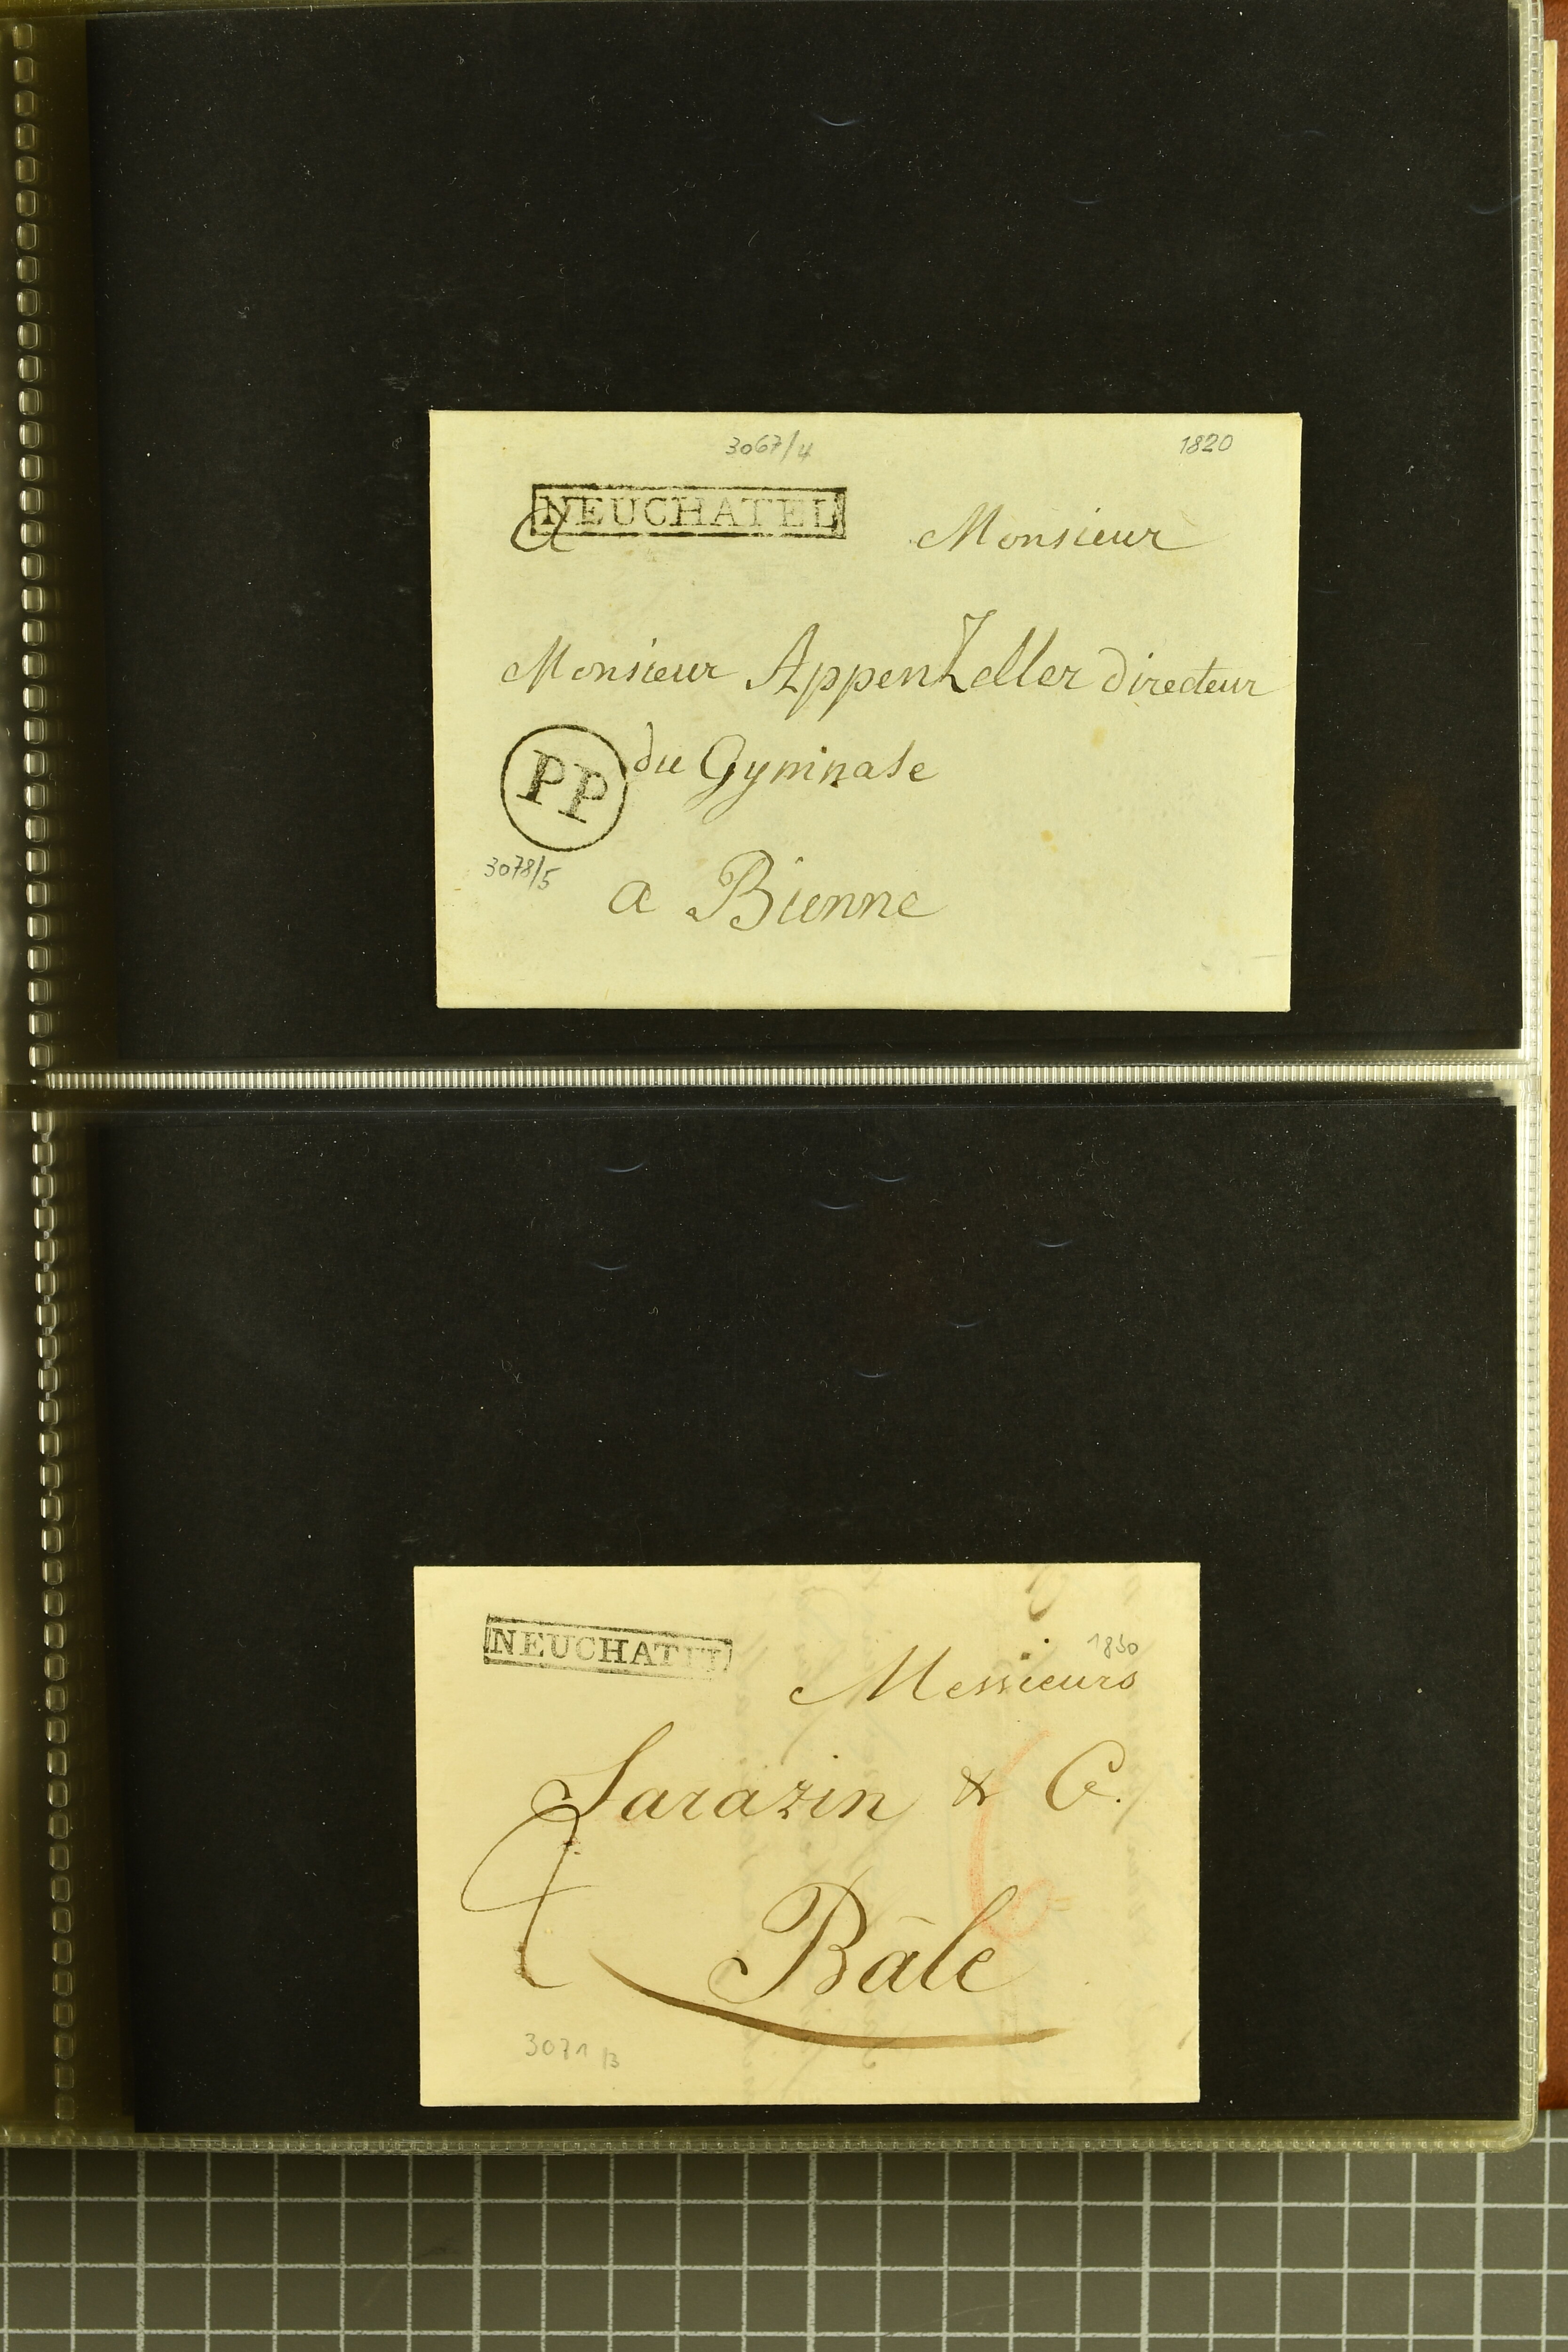 3067/4
1820
NEUCHATEL
A Monsieur
Monsieur AppenZeller directeur
du Gymnase
PP
3078/5
a Bienne
NEUCHATEL
1830
Messieurs
Sarazin & C.
Bâle
3071/3